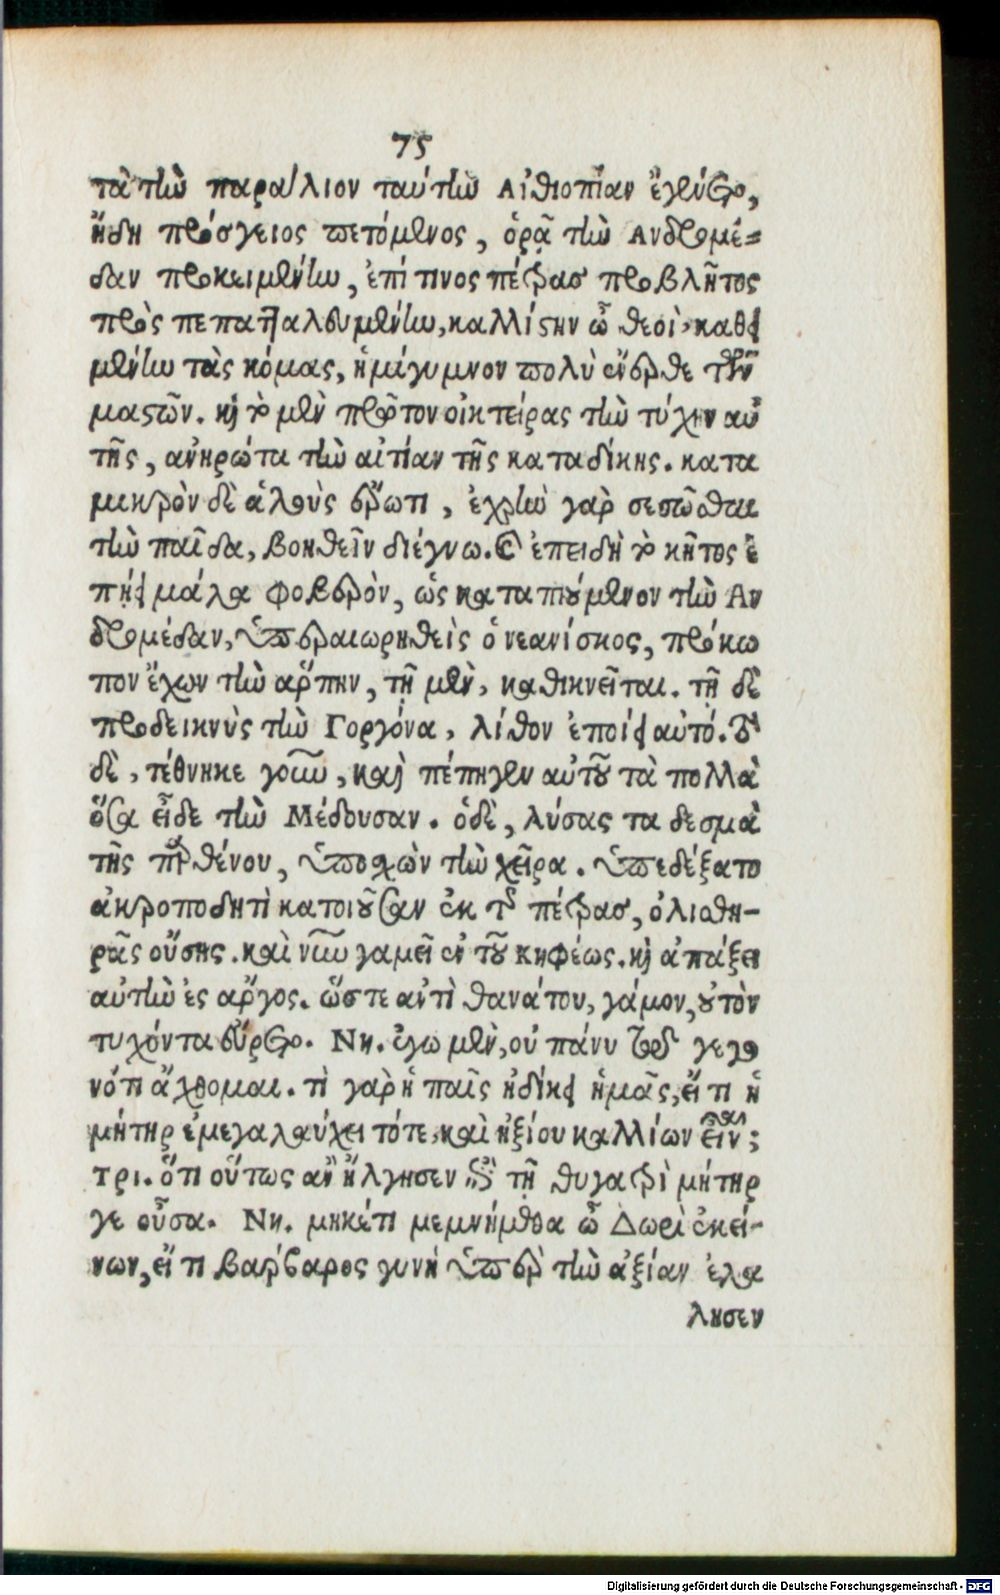 75
τὰ τὴν παράλιον ταύτην Αἰθιοπίαν ἐγένετο,
ἤδη πρόσγειος πετόμενος, ὁρᾷ τὴν Ανδρομέ=
δαν προκειμένην, ἐπί τινος πέτρας προβλῆτος
προσπεπατταλευμένην, καλλίστην ὦ θεοὶ, καθει
μένην τὰς κόμας, ἡμίγυμνον πολὺ ἔνερθε τῶν
μαστῶν. καὶ τὸ μὲν πρῶτον οἰκτείρας τὴν τύχην αὐ
τῆς, ανηρώτα τὴν αἰτίαν τῆς καταδίκης. κατα
μικρὸν δὲ ἁλοὺς ἔρωτι, ἐχρῆν γὰρ σεσῶσθαι
τὴν παῖδα, βοηθεῖν διέγνω. καὶ ἐπειδὴ τὸ κῆτος ἐ
πῄει μάλα φοβερὸν, ὡς καταπιούμενον τὴν Αν
δρομέδαν, ὑπεραιωρηθεὶς ὁ νεανίσκος, πρόκω
πον ἔχων τὴν αρπην, τῇ μὲν, καθικνεῖται. τῇ δὲ
προδεικνὺς τὴν Γοργόνα, λίθον ἐποίει αὐτό. τὸ
δὲ, τέθνηκε γοῦν, καὶ πέπηγεν αὐτοῦ τὰ πολλὰ
ὅσα εἶδε τὴν Μέδουσαν. ὁδὲ, λύσας τα δεσμὰ
τῆς παρθένου, ὑποσχὼν τὴν χεῖρα. ὑπεδέξατο
ἀκροποδητὶ κατιοῦσαν ἐκ τῆς πέτρας, ὀλισθη-
ρᾶς οὔσης. καὶ νῦν γαμεῖ ἐν τοῦ Κηφέως. καὶ ἀπάξει
αὐτὴν ἐς αργος. ὥστε αντὶ θανάτου, γάμον, οὐ τὸν
τυχόντα εὕρετο. Νη. ἐγω μὲν, οὐ πάνυ τῷ γεγο
νότι ἄχθομαι. τὶ γαρ ἡ παῖς ἠδίκει ἡμᾶς, εἴ τι ἡ
μήτηρ ἐμεγαλαύχει τότε, καὶ ἠξίου καλλίων εἶναι;
Τρι. ὅτι οὕτως αν ἤλγησεν ἐπὶ τῇ θυγατρὶ μήτηρ
γε οὖσα. Νη. μηκέτι μεμνήμεθα ὦ Δωρὶ ἐκεί-
νων, εἴ τι βαρβαρος γυνὴ ὑπὲρ τὴν ἀξίαν ἐλα
λησεν
Digitalisierung gefördert durch die Deutsche Forschungsgemeinschaft - DFG